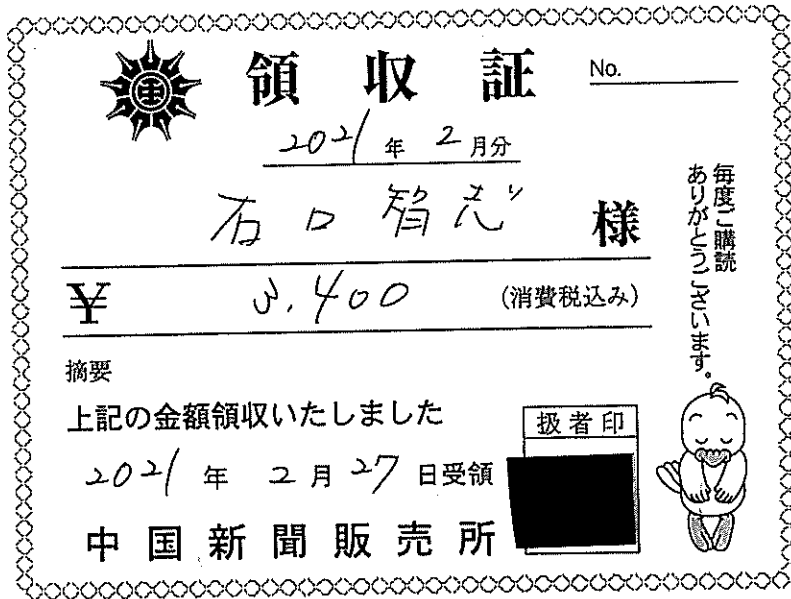 領収証
No.
2021年 2月分
石口智志 様
¥ 3.400 (消費税込み)
毎度ご購読
ありがとうございます。
摘要
上記の金額領収いたしました
扱者印
2021年 2月27日受領
中国新聞販売所